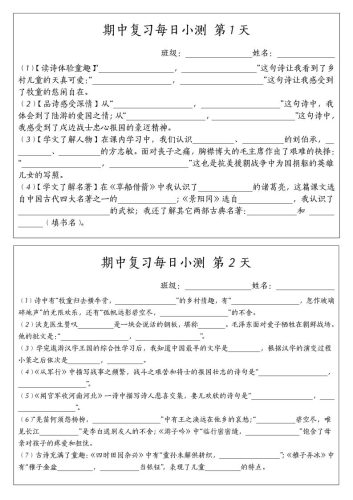 期中复习每日小测 第1天
班级：__________姓名：__________
（1）【读诗体验童趣】“____________，____________”这句诗让我看到了乡
村儿童的天真可爱：“____________，____________”这句诗让我感受到
了牧童的悠闲自在。
（2）【品诗感受深情】从“____________，____________”这句诗中，我
体会到了陆游的爱国之情；从“____________，____________”这句诗中，
我感受到了戍边战士忠心报国的豪迈精神。
（3）【学文了解人物】在课内学习中，我们认识__________、__________的刘伯承，__________
__________、__________的方志敏。面对丧子之痛，胸襟博大的毛主席作出了艰难的抉择：
“____________，____________”这也是抗美援朝战争中为国捐躯的英雄
儿女的写照。
（4）【学文了解名著】在《草船借箭》中我认识了__________的诸葛亮，这篇课文选
自中国古代四大名著之一的__________；《景阳冈》选自__________，我认识了
__________的武松；我还了解其它两部古典名著：__________和__________
__________（填书名）。
期中复习每日小测 第2天
班级：__________姓名：__________
（1）诗中有“牧童归去横牛背，____________”的乡村情趣，有“____________，忽作玻璃
碎地声”的无限欢乐，还有“孤帆远影碧空尽，____________”的不舍。
（2）沃克医生赞叹__________是一块会说话的钢板，堪称__________。毛泽东面对爱子牺牲在朝鲜战场，
他的批文是：“____________，____________”。
（3）学完遨游汉字王国的综合性学习后，我知道中国最早的文字是__________，根据汉字的演变过程
小篆之后依次是__________、__________、__________。
（4）《从军行》中描写战事之频繁，战斗之艰苦和将士的报国壮志的诗句是“____________，
____________”。
（5）《闻官军收河南河北》一诗中描写诗人悲喜交集，要儿欢欣的诗句是“____________，
____________”。
（6）“羌笛何须怨杨柳，____________”中有王之涣远在他乡的哀愁；“____________碧空尽，唯
见长江____________”是李白送别友人的不舍；《游子吟》中“临行密密缝，____________”饱含了母
亲对孩子的疼爱和担忧。
（7）古诗充满了童趣：《四时田园杂兴》中有“童孙未解供耕织，____________”；《稚子弄冰》中
有“稚子金盆____________，____________当银钲”，表现了儿童__________的特点。